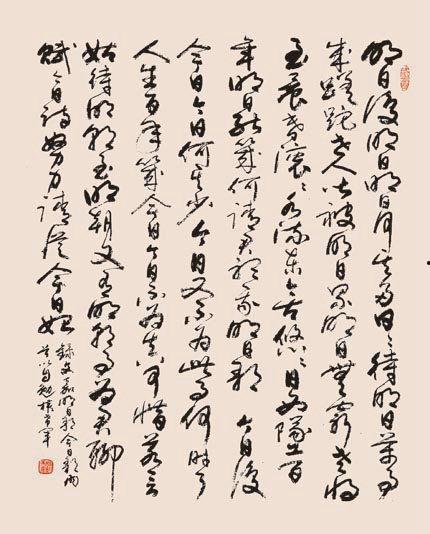 明日復明日明日何其多日〻待明日萬事
成蹉跎世人皆被明日累明日無窮老將
至晨昏滾〻水流東今古悠〻日西墜百
年明日能幾何請君聽我明日歌 今日復
今日今日何其少今日又不為此事何時了
人生百年幾今日今日不為真可惜若言
姑待明朝至明朝又有明朝事為君聊
賦今日詩努力請從今日始
錄文嘉明日歌今日歌兩
首以自勉